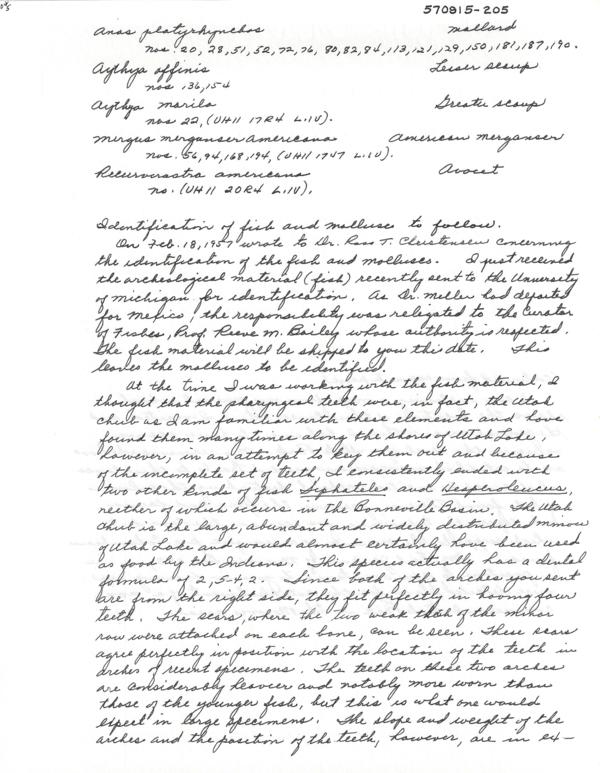 570815-205
Anas platyrhynchos Mallard
nos. 20, 28, 51, 52, 72, 76, 80, 82, 84, 113, 121, 129, 150, 181, 187, 190.
Aythya affinis Lesser scaup
nos. 136, 154
Aythya marila Greater scaup
nos 22, (UH11 17R4 L.IV).
Mergus merganser americana American merganser
nos. 56, 94, 168, 194, (UH11 1747 L.IV).
Recurvirostra americana Avocet
no. (UH11 20R4 L.IV).
Identification of fish and mollusc to follow.
On Feb. 18, 1957 wrote to Dr. Ross T. Christensen concerning
the identification of the fish and molluscs. I just received
the archeological material (fish) recently sent to the University
of Michigan for identification. As Dr. Miller had departed
for Mexico, the responsibility was relegated to the Curator
of Fishes, Prof. Reeve M. Bailey whose authority is respected.
The fish material will be shipped to you this date. This
leaves the molluscs to be identified.
At the time I was working with the fish material, I
thought that the pharyngeal teeth were, in fact, the Utah
chub as I am familiar with these elements and have
found them many times along the shores of Utah Lake,
however, in an attempt to key them out and because
of the incomplete set of teeth, I consistently ended with
two other kinds of fish Siphateles and Hesperoleucus,
neither of which occurs in the Bonneville Basin. The Utah
Chub is the large, abundant and widely distributed minnow
of Utah Lake and would almost certainly have been used
as food by the Indians. This species actually has a dental
formula of 2, 5-4, 2. Since both of the arches you sent
are from the right side, they fit perfectly in having four
teeth. The scars, where the two weak teeth of the minor
row were attached on each bone, can be seen. These scars
agree perfectly in position with the location of the teeth in
arches of recent specimens. The teeth on these two arches
are considerably heavier and notably more worn than
those of the younger fish, but this is what one would
expect in large specimens. The slope and weight of the
arches and the position of the teeth, however, are in ex-